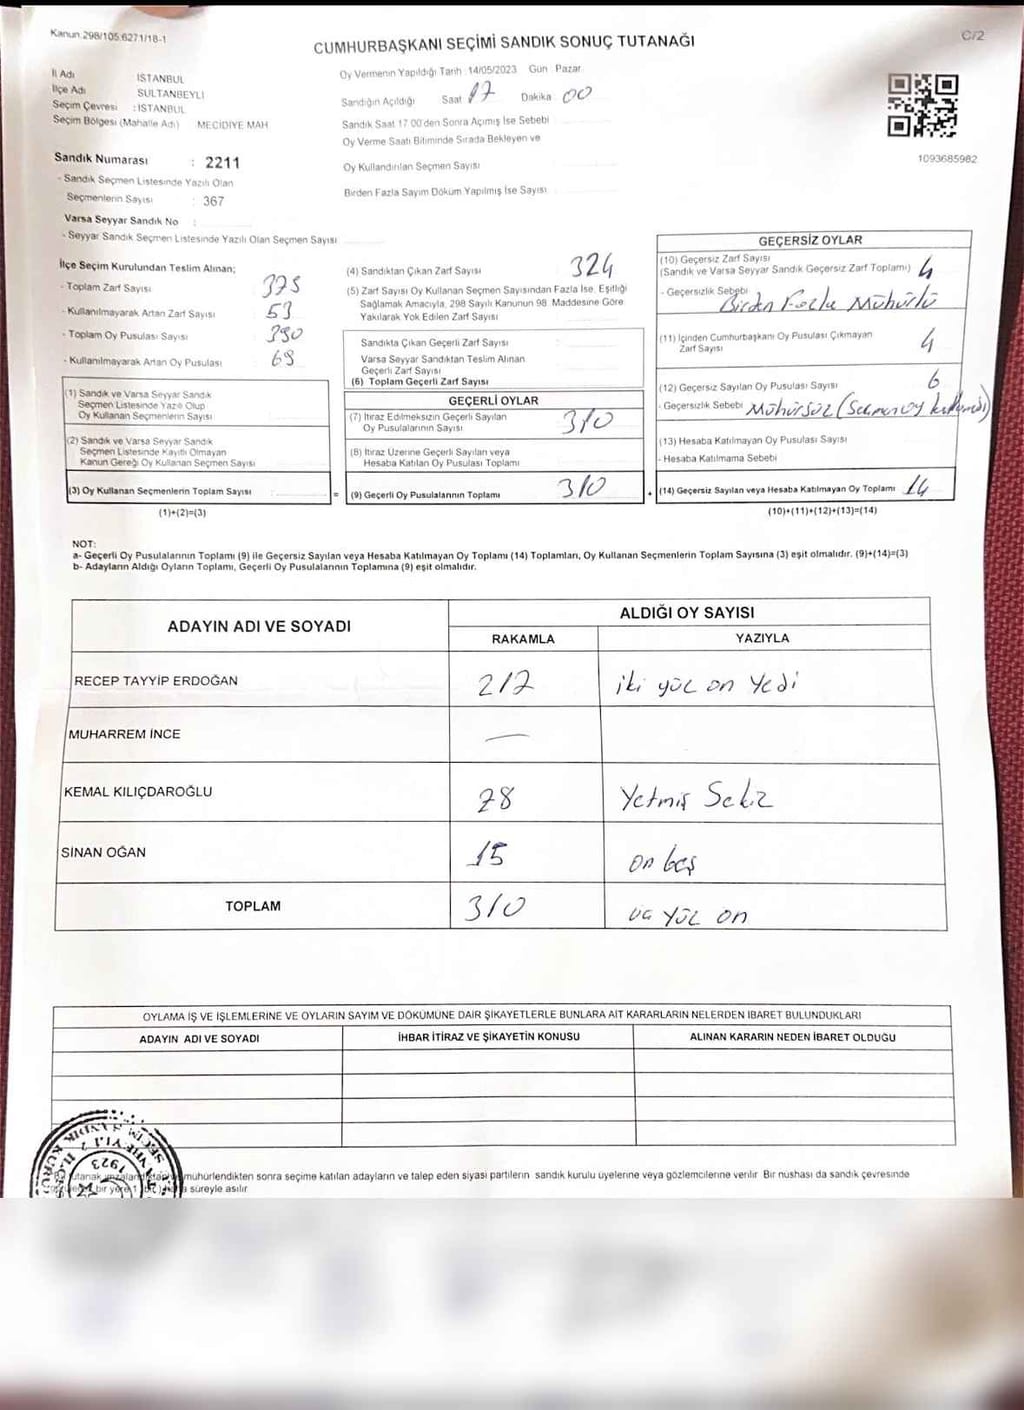 Kanun 298/105.6271/18-1
C/2
CUMHURBAŞKANI SEÇİMİ SANDIK SONUÇ TUTANAĞI
İl Adı İSTANBUL
İlçe Adı SULTANBEYLİ
Seçim Çevresi : İSTANBUL
Seçim Bölgesi (Mahalle Adı) MECİDİYE MAH
Sandık Numarası : 2211
- Sandık Seçmen Listesinde Yazılı Olan
Seçmenlerin Sayısı : 367
Varsa Seyyar Sandık No :
- Seyyar Sandık Seçmen Listesinde Yazılı Olan Seçmen Sayısı
Oy Vermenin Yapıldığı Tarih :14/05/2023 Gün Pazar
Sandığın Açıldığı Saat 17 Dakika 00
Sandık Saat 17.00'den Sonra Açımış İse Sebebi
Oy Verme Saati Bitiminde Sırada Bekleyen ve
Oy Kullandırılan Seçmen Sayısı
Birden Fazla Sayım Döküm Yapılmış İse Sayısı
1093685982
İlçe Seçim Kurulundan Teslim Alınan;
- Toplam Zarf Sayısı 375
- Kullanılmayarak Artan Zarf Sayısı 53
- Toplam Oy Pusulası Sayısı 390
- Kullanılmayarak Artan Oy Pusulası 69
(1) Sandık ve Varsa Seyyar Sandık
Seçmen Listesinde Yazılı Olup
Oy Kullanan Seçmenlerin Sayısı
(2) Sandık ve Varsa Seyyar Sandık
Seçmen Listesinde Kayıtlı Olmayan
Kanun Gereği Oy Kullanan Seçmen Sayısı
(3) Oy Kullanan Seçmenlerin Toplam Sayısı
(1)+(2)=(3)
(4) Sandıktan Çıkan Zarf Sayısı 324
(5) Zarf Sayısı Oy Kullanan Seçmen Sayısından Fazla İse, Eşitliği
Sağlamak Amacıyla, 298 Sayılı Kanunun 98 Maddesine Göre
Yakılarak Yok Edilen Zarf Sayısı
Sandıkta Çıkan Geçerli Zarf Sayısı
Varsa Seyyar Sandıktan Teslim Alınan
Geçerli Zarf Sayısı
(6) Toplam Geçerli Zarf Sayısı
GEÇERLİ OYLAR
(7) İtiraz Edilmeksizin Geçerli Sayılan
Oy Pusulalarının Sayısı 310
(8) İtiraz Üzerine Geçerli Sayılan veya
Hesaba Katılan Oy Pusulası Toplamı
= (9) Geçerli Oy Pusulalarının Toplamı 310
GEÇERSİZ OYLAR
(10) Geçersiz Zarf Sayısı
(Sandık ve Varsa Seyyar Sandık Geçersiz Zarf Toplamı) 4
- Geçersizlik Sebebi Birden Fazla Mühürlü
(11) İçinden Cumhurbaşkanı Oy Pusulası Çıkmayan
Zarf Sayısı 4
(12) Geçersiz Sayılan Oy Pusulası Sayısı 6
- Geçersizlik Sebebi Mühürsüz (Seçmen oy
(13) Hesaba Katılmayan Oy Pusulası Sayısı
- Hesaba Katılmama Sebebi
+ (14) Geçersiz Sayılan veya Hesaba Katılmayan Oy Toplamı 14
(10)+(11)+(12)+(13)=(14)
NOT:
a- Geçerli Oy Pusulalarının Toplamı (9) ile Geçersiz Sayılan veya Hesaba Katılmayan Oy Toplamı (14) Toplamları, Oy Kullanan Seçmenlerin Toplam Sayısına (3) eşit olmalıdır. (9)+(14)=(3)
b- Adayların Aldığı Oyların Toplamı, Geçerli Oy Pusulalarının Toplamına (9) eşit olmalıdır.
ADAYIN ADI VE SOYADI
ALDIĞI OY SAYISI
RAKAMLA YAZIYLA
RECEP TAYYİP ERDOĞAN 217 iki yüz on yedi
MUHARREM İNCE —
KEMAL KILIÇDAROĞLU 78 Yetmiş Sekiz
SİNAN OĞAN 15 on beş
TOPLAM 310 üç yüz on
OYLAMA İŞ VE İŞLEMLERİNE VE OYLARIN SAYIM VE DÖKÜMÜNE DAİR ŞİKAYETLERLE BUNLARA AİT KARARLARIN NELERDEN İBARET BULUNDUKLARI
ADAYIN ADI VE SOYADI İHBAR İTİRAZ VE ŞİKAYETİN KONUSU ALINAN KARARIN NEDEN İBARET OLDUĞU
mühürlendikten sonra seçime katılan adayların ve talep eden siyasi partilerin sandık kurulu üyelerine veya gözlemcilerine verilir Bir nüshası da sandık çevresinde
bir yere 1 süreyle asılır
1923